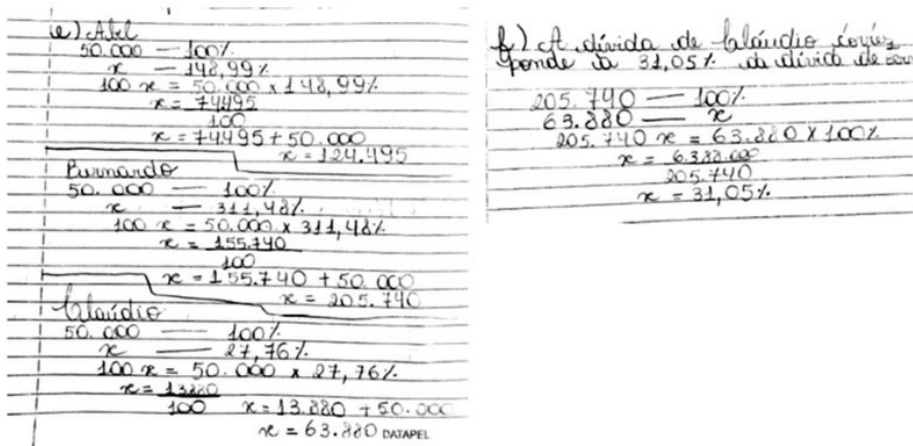 e) Abel
50.000 — 100%
x — 148,99%
100 x = 50.000 x 148,99%
x = 74495
100
x = 74495 + 50.000
x = 124.495
Bernardo
50.000 — 100%
x — 311,48%
100 x = 50.000 x 311,48%
x = 155.740
100
x = 155.740 + 50.000
x = 205.740
Claúdio
50.000 — 100%
x — 27,76%
100 x = 50.000 x 27,76%
x = 13880
100 x = 13.880 + 50.000
x = 63.880 DATAPEL
f) A dívida de Claúdio corres
ponde a 31,05% da dívida de
205.740 — 100%
63.880 — x
205.740 x = 63.880 x 100%
x = 6.388.000
205.740
x = 31,05%